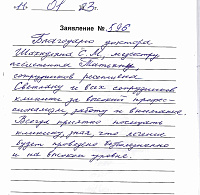 11 01 23г.
Заявление № 596
Благодарю доктора
Шахновича С.М., медсестру
Татьяну,
сотрудников ресепшена
Светлану и всех сотрудников
клиники за высокий профес-
сионализм работу и внимание.
Всегда приятно посещать
клинику, зная, что лечение
будет проведено безболезненно
и на высоком уровне.